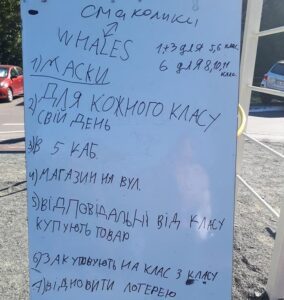 смаколики
WHALES
1+3 для 5,6 клас
6 для 8,10,11 клас
1) МАСКИ
2) ДЛЯ КОЖНОГО КЛАСУ
СВІЙ ДЕНЬ
3) В 5 КАБ.
4) МАГАЗИН НА ВУЛ.
5) ВІДПОВІДАЛЬНІ ВІД КЛАСУ
КУПУЮТЬ ТОВАР
6) ЗАКУПОВУЮТЬ НА КЛАС З КЛАСУ
7) ВІДНОВИТИ ЛОТЕРЕЮ